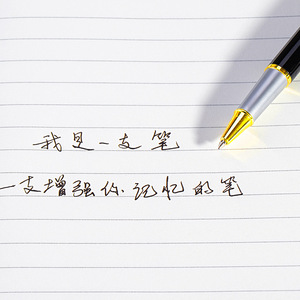 我是一支笔
一支增强你记忆的笔